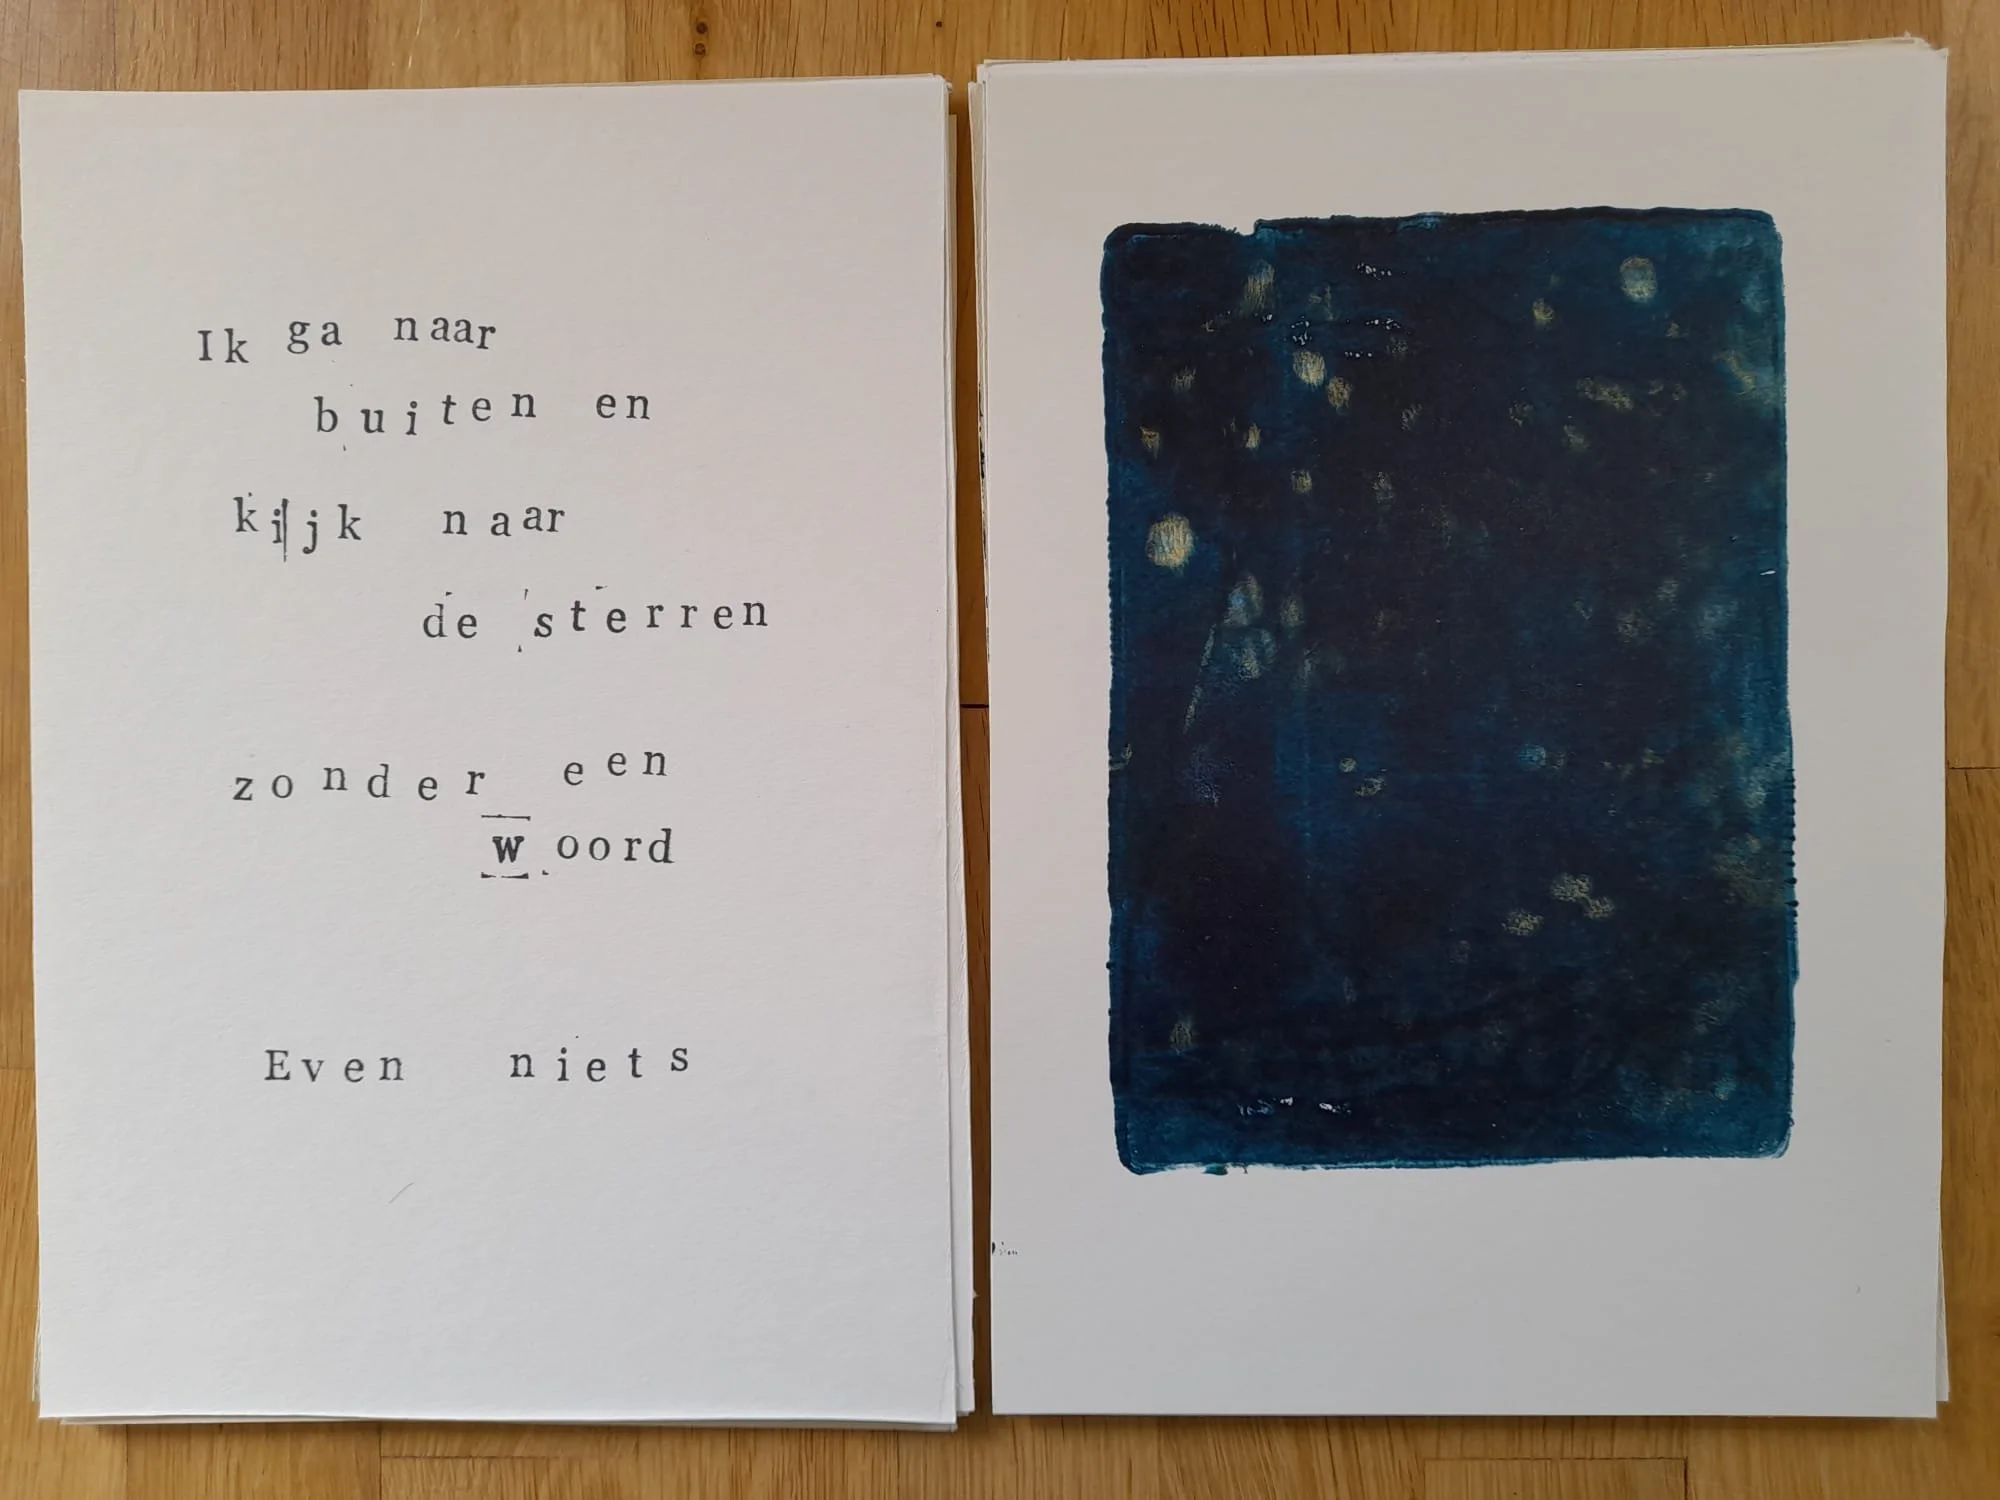 Ik ga naar
buiten en
kijk naar
de sterren
zonder een
woord
Even niets